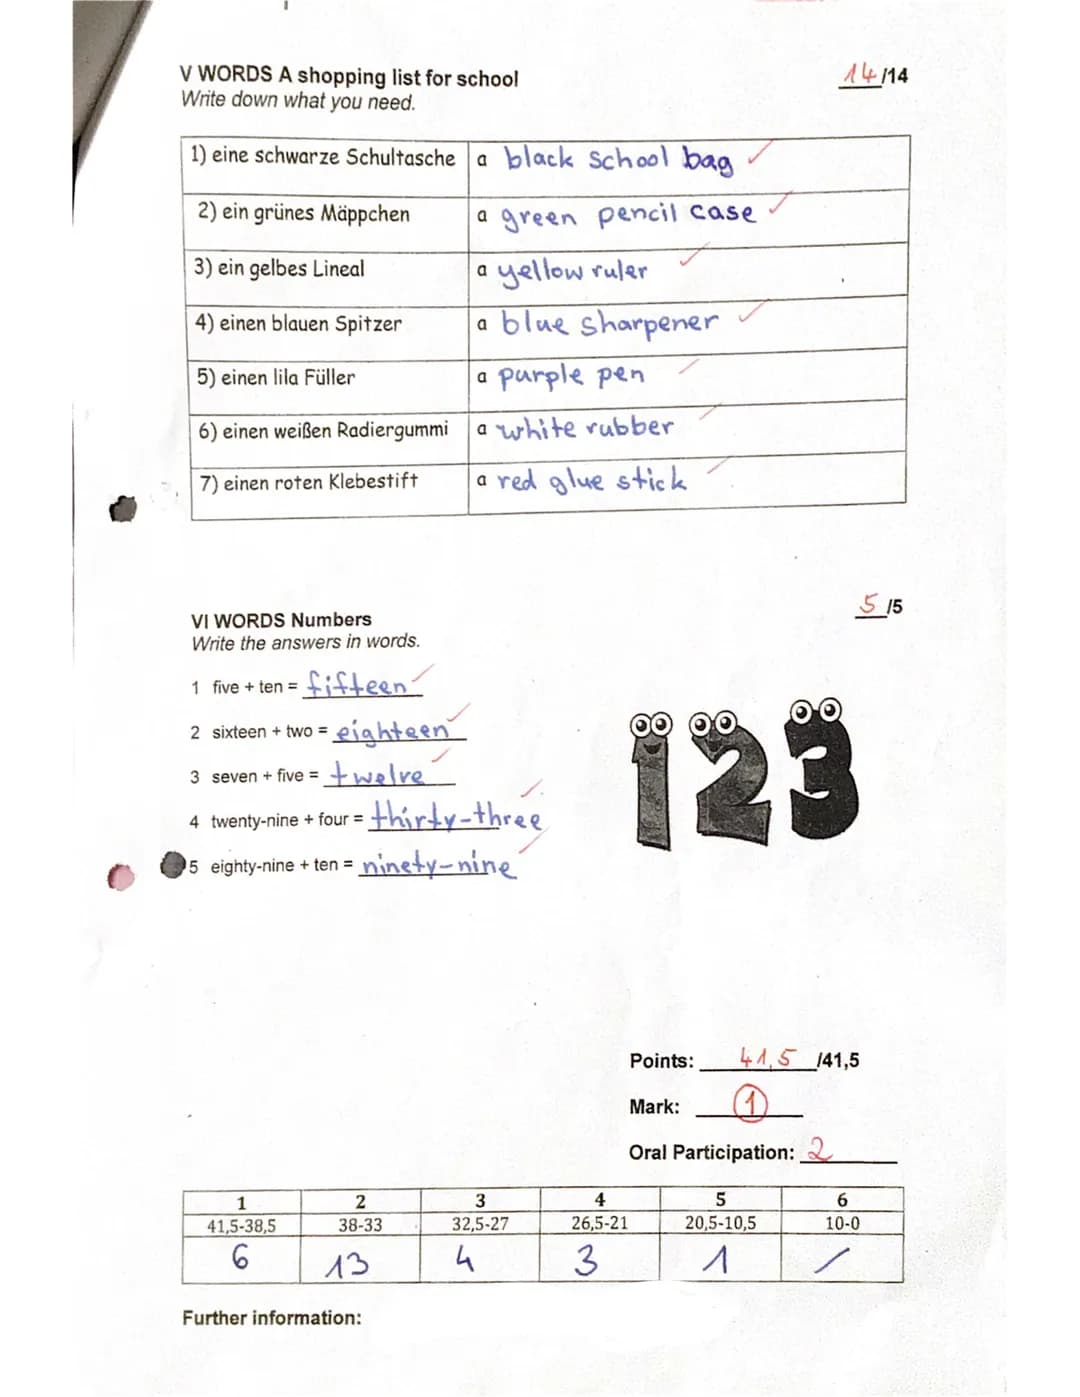 V WORDS A shopping list for school 14/14
Write down what you need.
1) eine schwarze Schultasche a black school bag
2) ein grünes Mäppchen a green pencil case
3) ein gelbes Lineal a yellow ruler
4) einen blauen Spitzer a blue sharpener
5) einen lila Füller a purple pen
6) einen weißen Radiergummi a white rubber
7) einen roten Klebestift a red glue stick
VI WORDS Numbers 5/5
Write the answers in words.
1 five + ten = fifteen
2 sixteen + two = eighteen
3 seven + five = twelve
4 twenty-nine + four = thirty-three
5 eighty-nine + ten = ninety-nine
123
Points: 41,5 /41,5
Mark: 1
Oral Participation: 2
1 2 3 4 5 6
41,5-38,5 38-33 32,5-27 26,5-21 20,5-10,5 10-0
6 13 4 3 1 /
Further information: